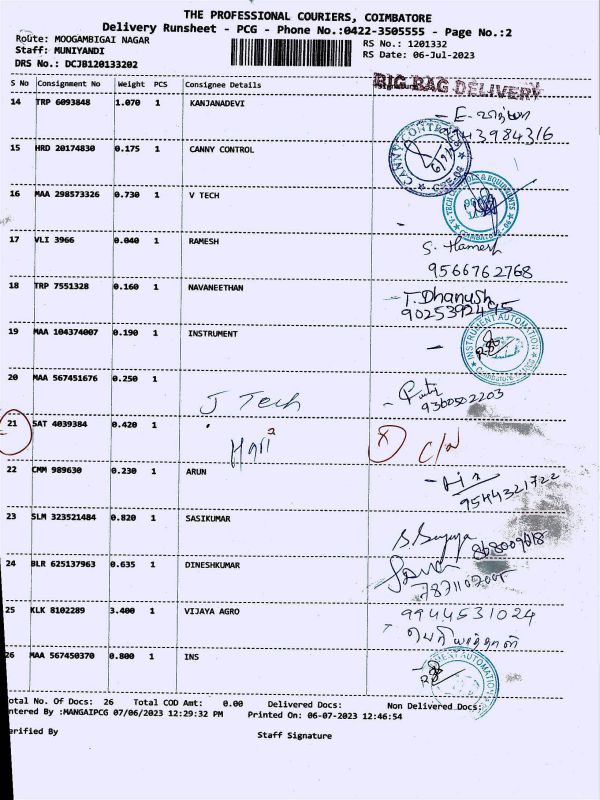 THE PROFESSIONAL COURIERS, COIMBATORE
Delivery Runsheet - PCG - Phone No.:0422-3505555 - Page No.:2
Route: MOOGAMBIGAI NAGAR
RS No.: 1201332
Staff: MUNIYANDI
RS Date: 06-Jul-2023
DRS No.: DCJB120133202
S No Consignment No Weight PCS Consignee Details
BIG BAG DELIVERY
14 TRP 6093848 1.070 1 KANJANADEVI
15 HRD 20174830 0.175 1 CANNY CONTROL
CANNY CONTROL
16 MAA 298573326 0.730 1 V TECH
17 VLI 3966 0.040 1 RAMESH
9566762768
18 TRP 7551328 0.160 1 NAVANEETHAN
T. Dhanush
9025392495
19 MAA 104374007 0.190 1 INSTRUMENT
INSTRUMENT AUTOMATION
20 MAA 567451676 0.250 1
J Tech
9360502203
21 SAT 4039384 0.420 1
Hari
22 CMM 989630 0.230 1 ARUN
9544321722
23 SLM 323521484 0.820 1 SASIKUMAR
24 BLR 625137963 0.635 1 DINESHKUMAR
25 KLK 8102289 3.400 1 VIJAYA AGRO
9944531024
26 MAA 567450370 0.800 1 INS
otal No. Of Docs: 26 Total COD Amt: 0.00 Delivered Docs: Non Delivered Docs:
ntered By :MANGAIPCG 07/06/2023 12:29:32 PM Printed On: 06-07-2023 12:46:54
erified By
Staff Signature